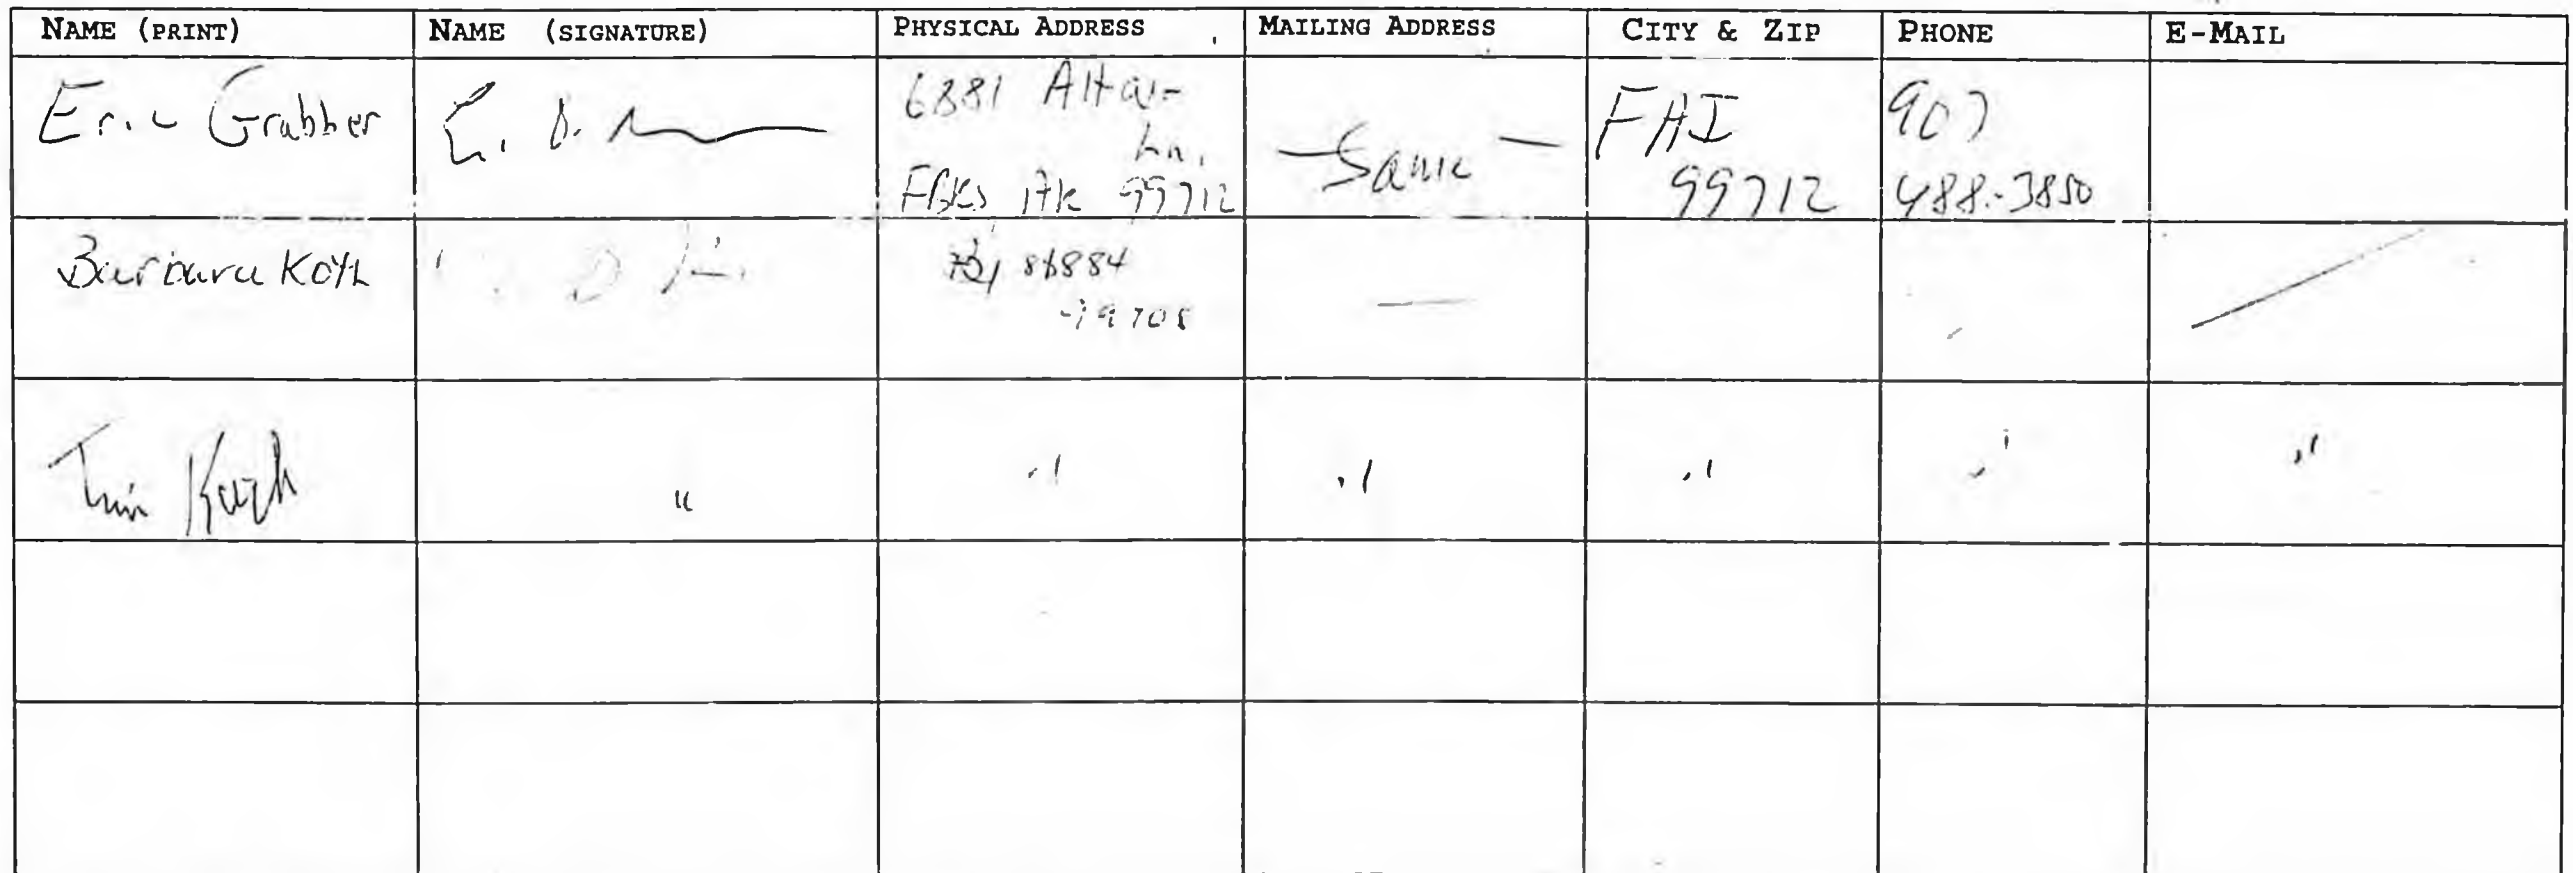 NAME (PRINT) NAME (SIGNATURE) PHYSICAL ADDRESS MAILING ADDRESS CITY & ZIP PHONE E-MAIL
Eric Grabber 6881 Altair Same FAI 907
Ln.
FBKS AK 99712 99712 488-3850
Barbara Koth 86884
99708
" " " " " "